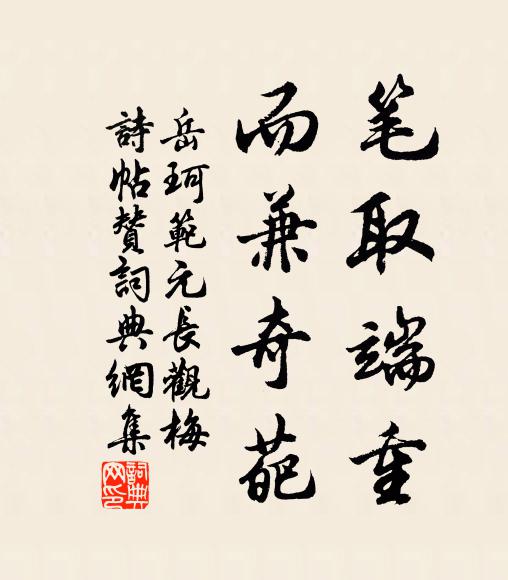 笔取端重
而兼奇葩
岳珂範元長觀梅
詩帖贊詞典網集
詞典
网印